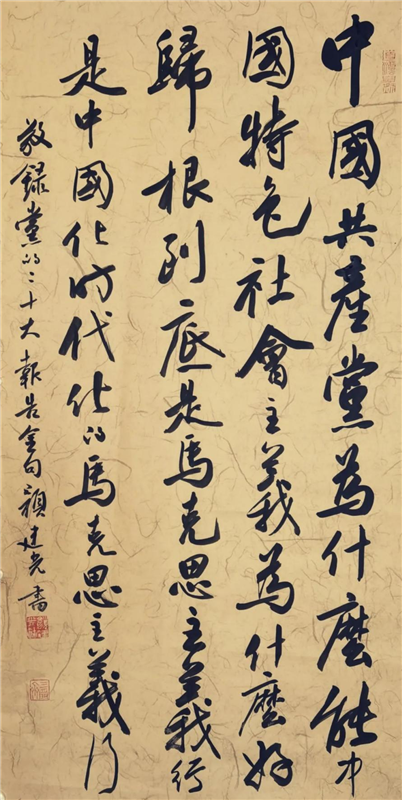 中國共產黨為什麼能中
國特色社會主義為什麼好
歸根到底是馬克思主義行
是中國化时代化的馬克思主義行
敬録黨的二十大報告金句顏建光書